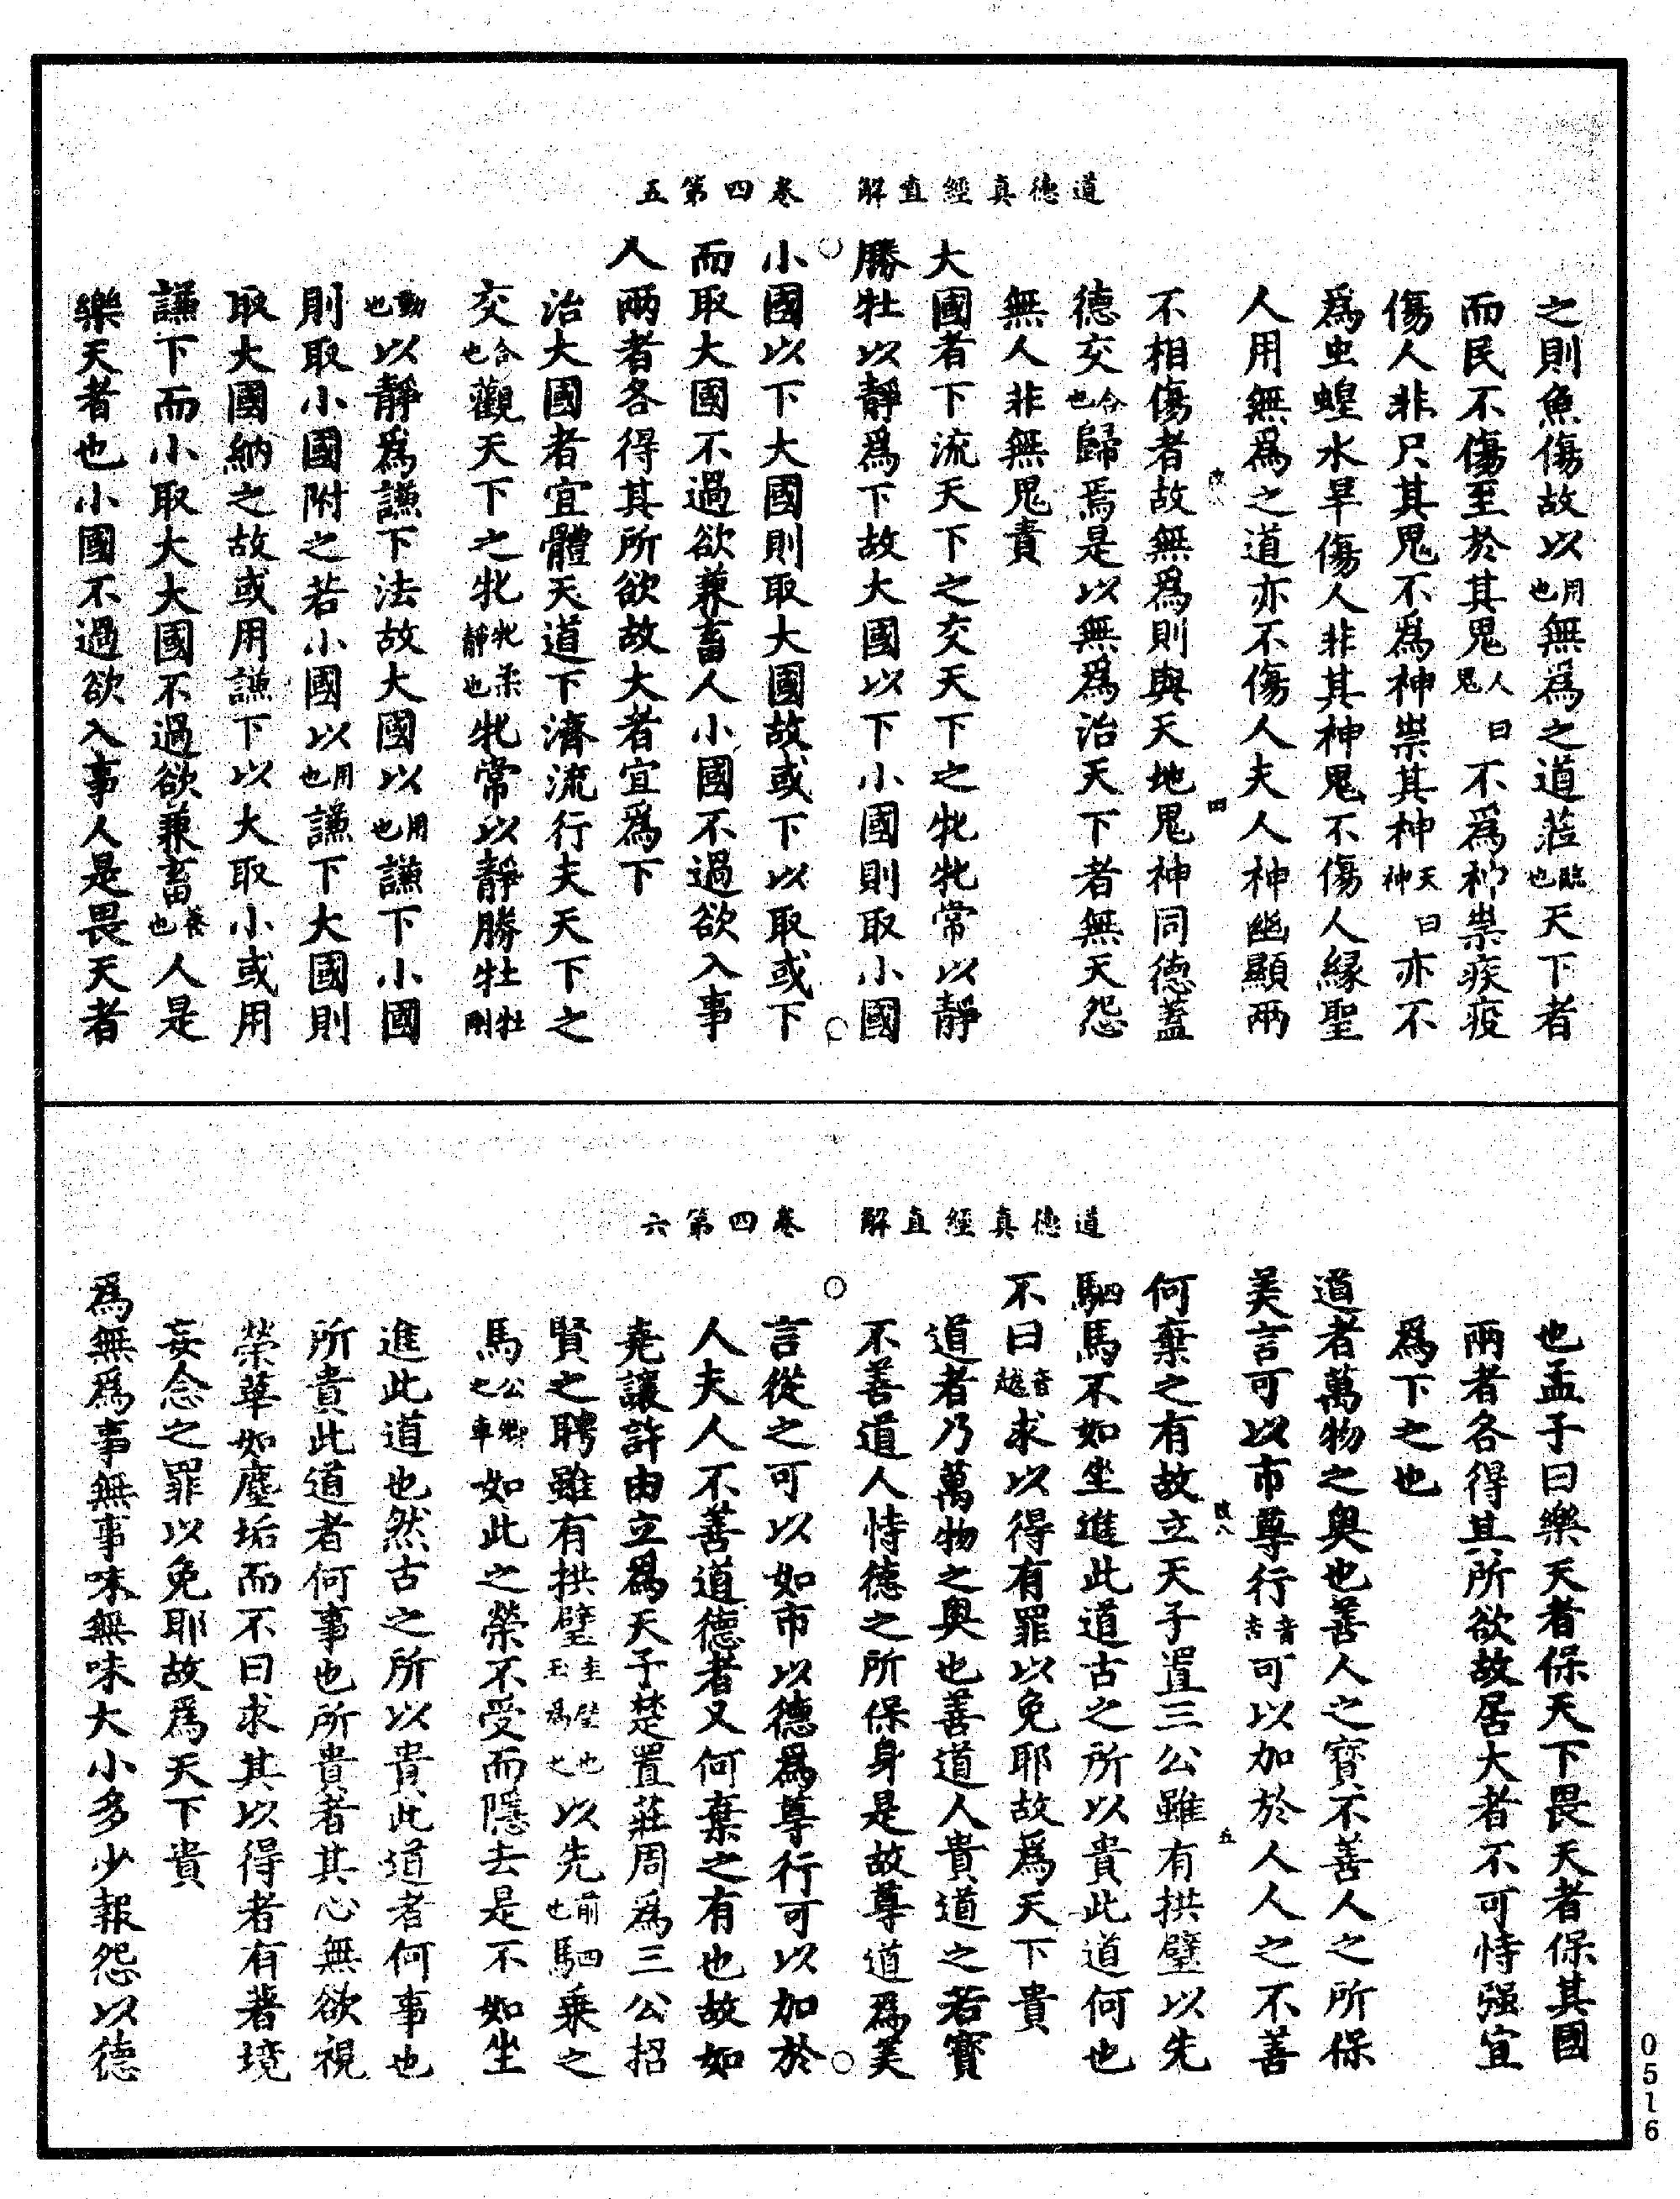 道德真經直解　卷四第五
之則魚傷故以用也無爲之道莅臨也天下者
而民不傷至於其鬼人曰鬼不爲神祟疾疫
傷人非只其鬼不爲神祟其神天曰神亦不
爲虫蝗水旱傷人非其神鬼不傷人緣聖
人用無爲之道亦不傷人夫人神幽顯兩
不相傷者故無爲則與天地鬼神同德蓋
德交合也歸焉是以無爲治天下者無天怨
無人非無鬼責
大國者下流天下之交天下之牝牝常以靜
勝牡以靜爲下故大國以下小國則取小國
小國以下大國則取大國故或下以取或下
而取大國不過欲兼畜人小國不過欲入事
人兩者各得其所欲故大者宜爲下
治大國者宜體天道下濟流行夫天下之
交合也觀天下之牝牝柔靜也牝常以靜勝牡牡剛
動也以靜爲謙下法故大國以用也謙下小國
則取小國附之若小國以用也謙下大國則
取大國納之故或用謙下以大取小或用
謙下而小取大大國不過欲兼畜養也人是
樂天者也小國不過欲入事人是畏天者
道德真經直解　卷四第六
也孟子曰樂天者保天下畏天者保其國
兩者各得其所欲故居大者不可恃强宜
爲下之也
道者萬物之奧也善人之寶不善人之所保
美言可以市尊行音杏可以加於人人之不善
何棄之有故立天子置三公雖有拱璧以先
駟馬不如坐進此道古之所以貴此道何也
不曰音越求以得有罪以免耶故爲天下貴
道者乃萬物之奧也善道人貴道之若寶
不善道人恃德之所保身是故尊道爲美
言從之可以如市以德爲尊行可以加於
人夫人不善道德者又何棄之有也故如
堯讓許由立爲天子楚置莊周爲三公招
賢之聘雖有拱璧圭璧也玉爲之以先前也駟乘之
馬公卿之車如此之榮不受而隱去是不如坐
進此道也然古之所以貴此道者何事也
所貴此道者何事也所貴者其心無欲視
榮華如塵垢而不曰求其以得者有著境
妄念之罪以免耶故爲天下貴
爲無爲事無事味無味大小多少報怨以德
0516